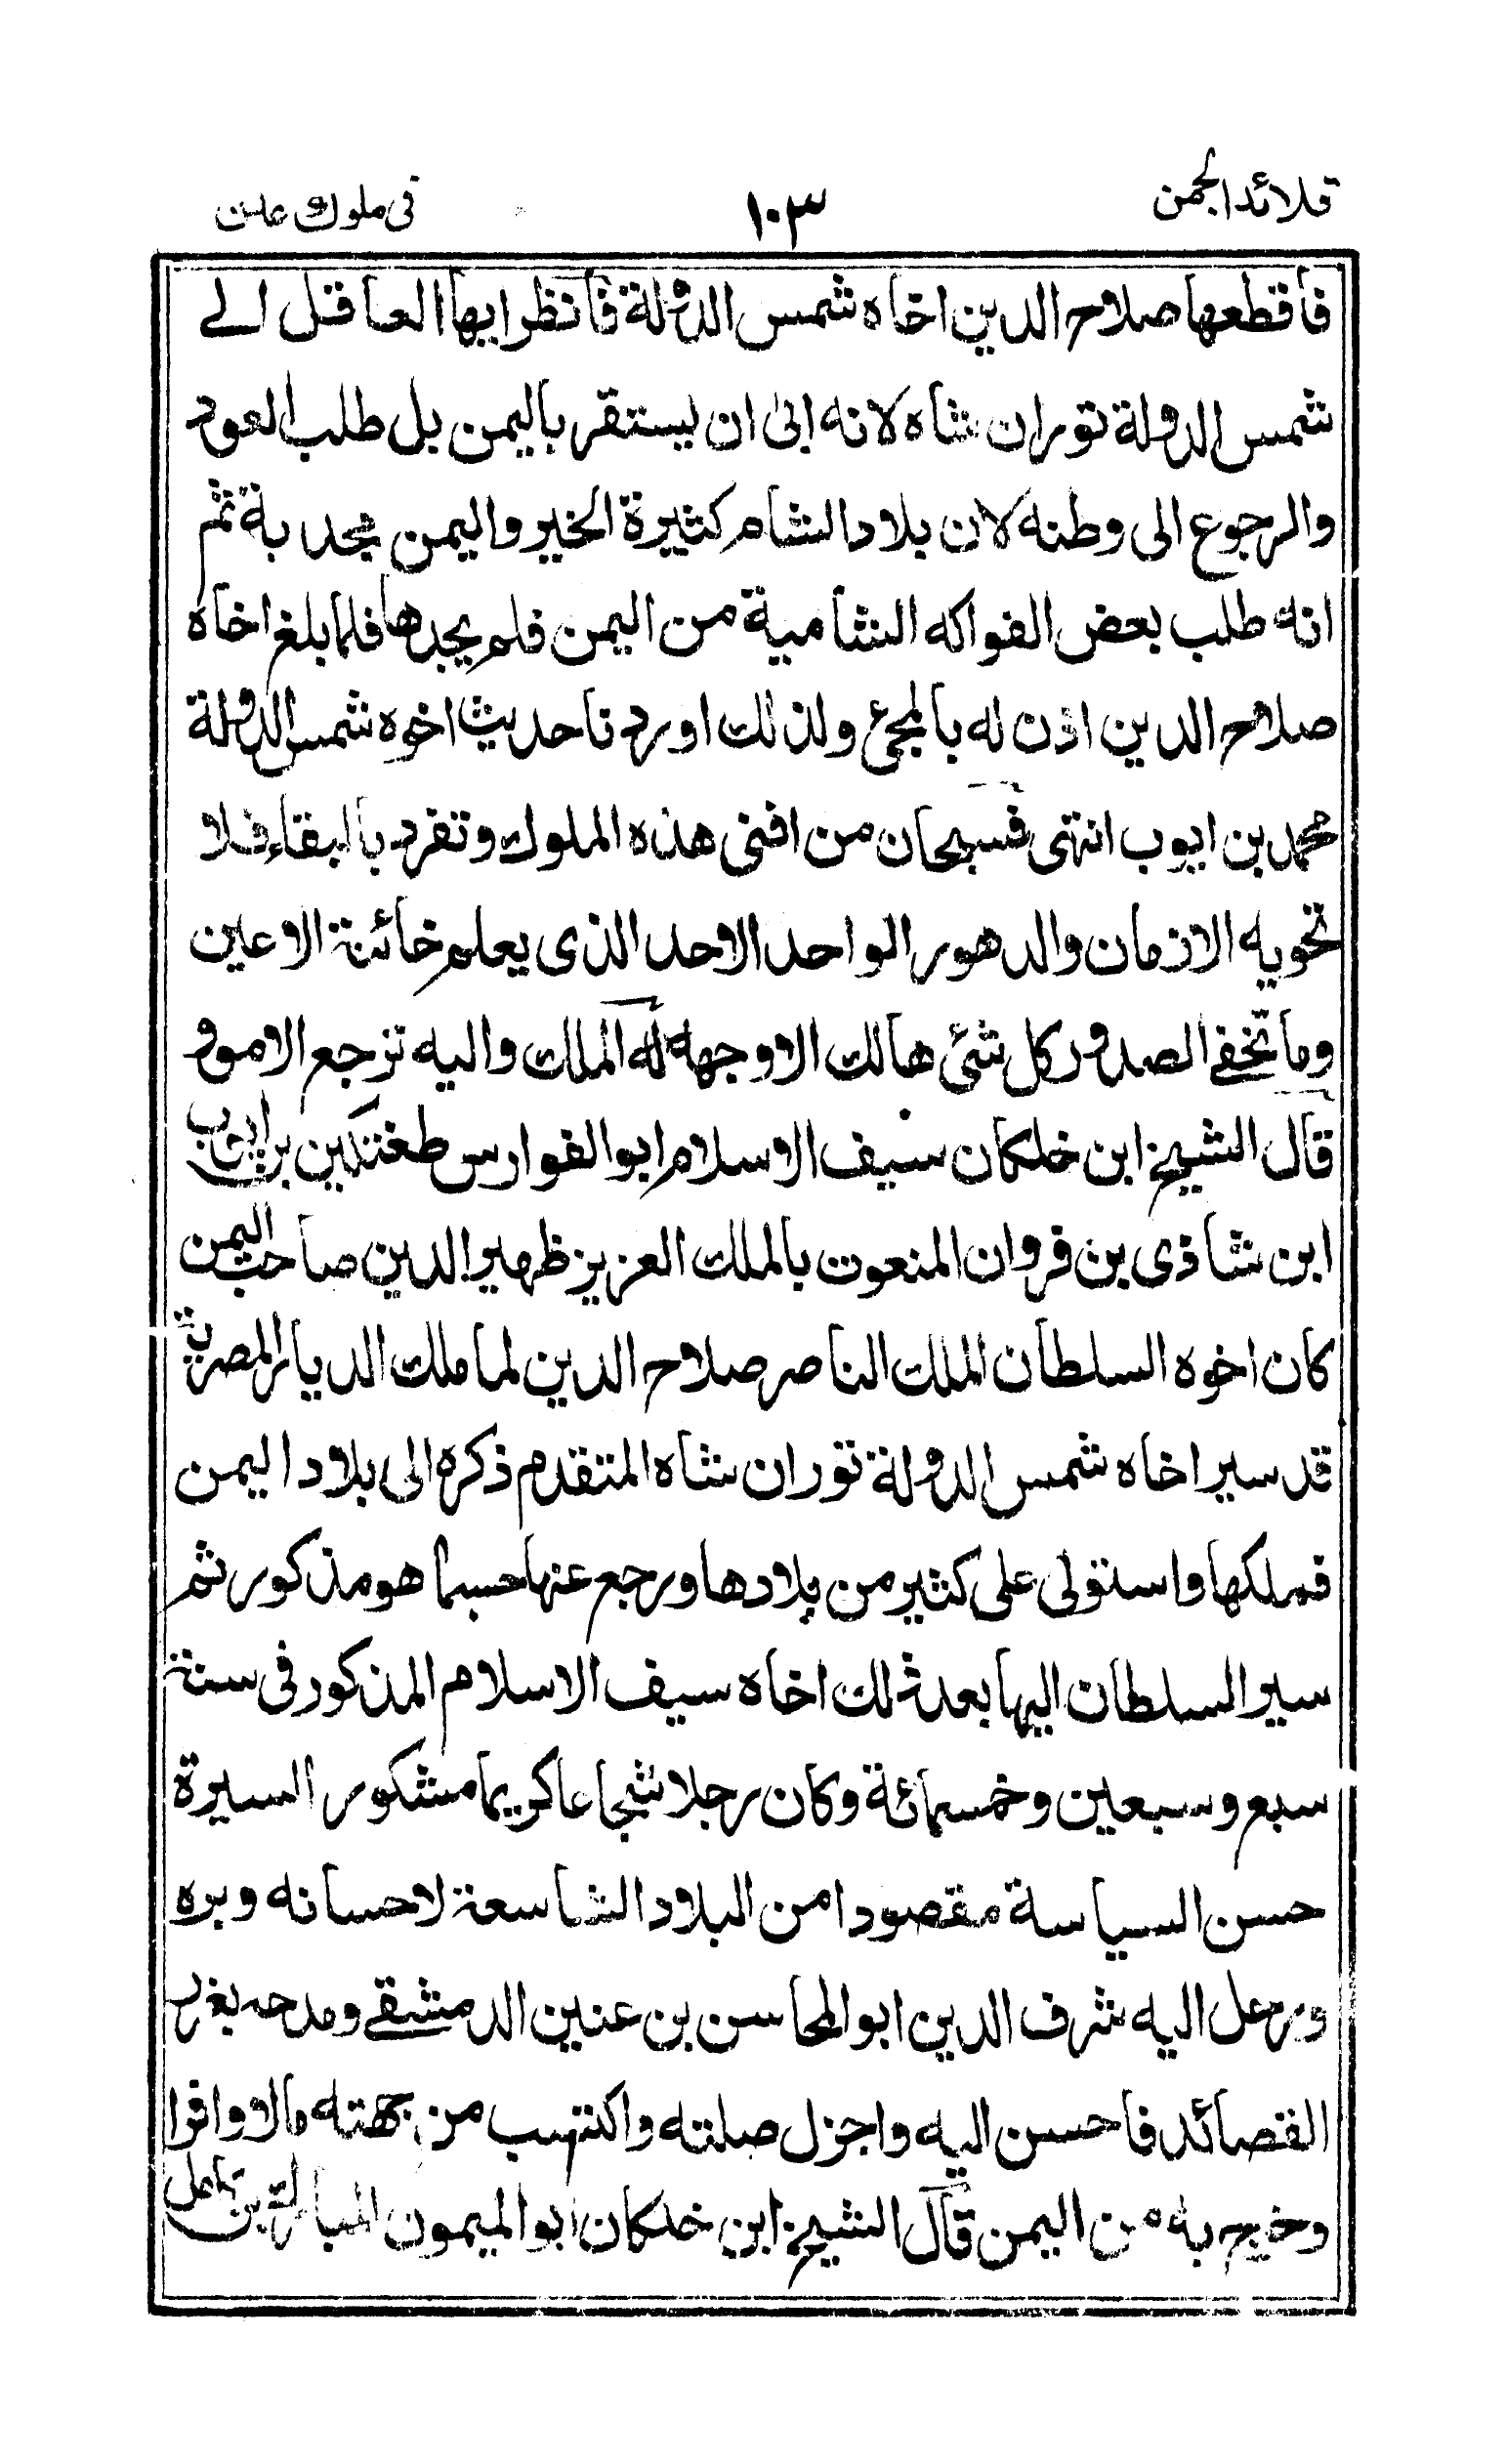 قلائد الجمن
١٠٣
فى ملوك عدن
فأقطعها صلاح الدين اخاه شمس الدولة فأنظر ايها العاقل الے
شمس الدولة توران شاه لانه ابىٰ ان يستقر باليمن بل طلب العود
والرجوع الى وطنه لان بلاد الشام كثيرة الخير واليمن مجدبة ثم
انه طلب بعض الفواكه الشامية من اليمن فلم يجدها فلما بلغ اخاه
صلاح الدين اذن له بالمجئ ولذلك اوردنا حديث اخوه شمس الدولة
محمد بن ايوب انتهى فسبحان من افنى هذه الملوك وتفرد بالبقاء فلا
تحويه الازمان والدهور الواحد الاحد الذى يعلم خائنة الاعين
وما تخفے الصدور كل شئ هالك الا وجهه له الملك واليه ترجع الامور
قال الشيخ ابن خلكان سيف الاسلام ابو الفوارس طغتكين بن ايوب
ابن شاذى بن فروان المنعوت بالملك العزيز ظهير الدين صاحب اليمن
كان اخوه السلطان الملك الناصر صلاح الدين لما ملك الديار المصرية
قد سير اخاه شمس الدولة توران شاه المتقدم ذكره الى بلاد اليمن
فملكها واستولى على كثير من بلادها ورجع عنها حسبما هو مذكور ثم
سير السلطان اليها بعد ذلك اخاه سيف الاسلام المذكور فى سنة
سبع وسبعين وخمسمائة وكان رجلا شجاعا كريما مشكور السيرة
حسن السياسة مقصودا من البلاد الشاسعة لاحسانه وبره
ورحل اليه شرف الدين ابو المحاسن بن عنين الدمشقے ومدحه بغرر
القصائد فاحسن اليه واجزل صلته واكتسب من جهته مالا وافرا
وخرج به من اليمن قال الشيخ ابن خلكان ابو الميمون المبارك بن كامل